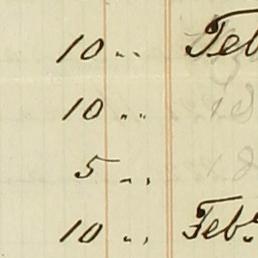 10 " " Feb
10 " "
5 " "
10 " " Feby.